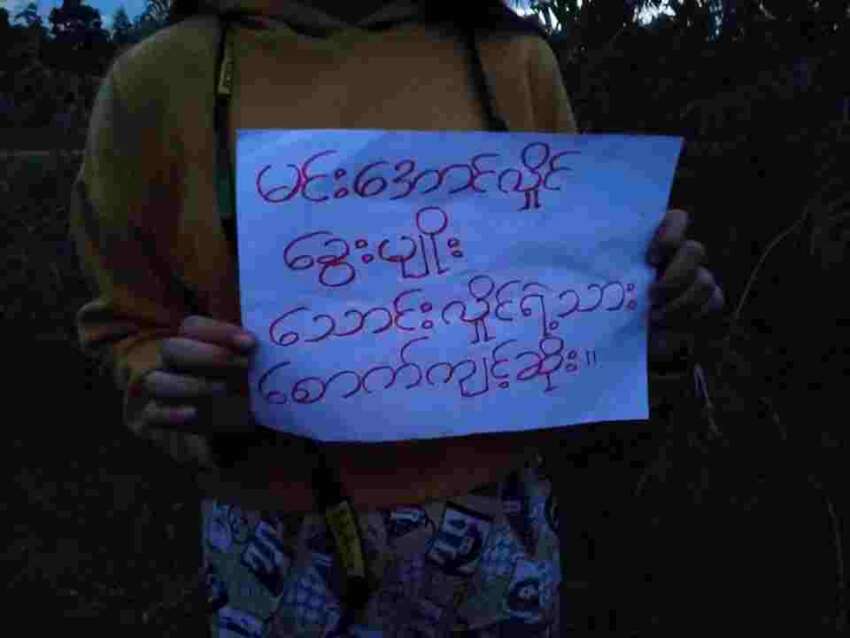 မင်းအောင်လှိုင်
ခွေးမျိုး
သောင်းလှိုင်ရဲ့သား
စောက်ကျင့်ဆိုး။